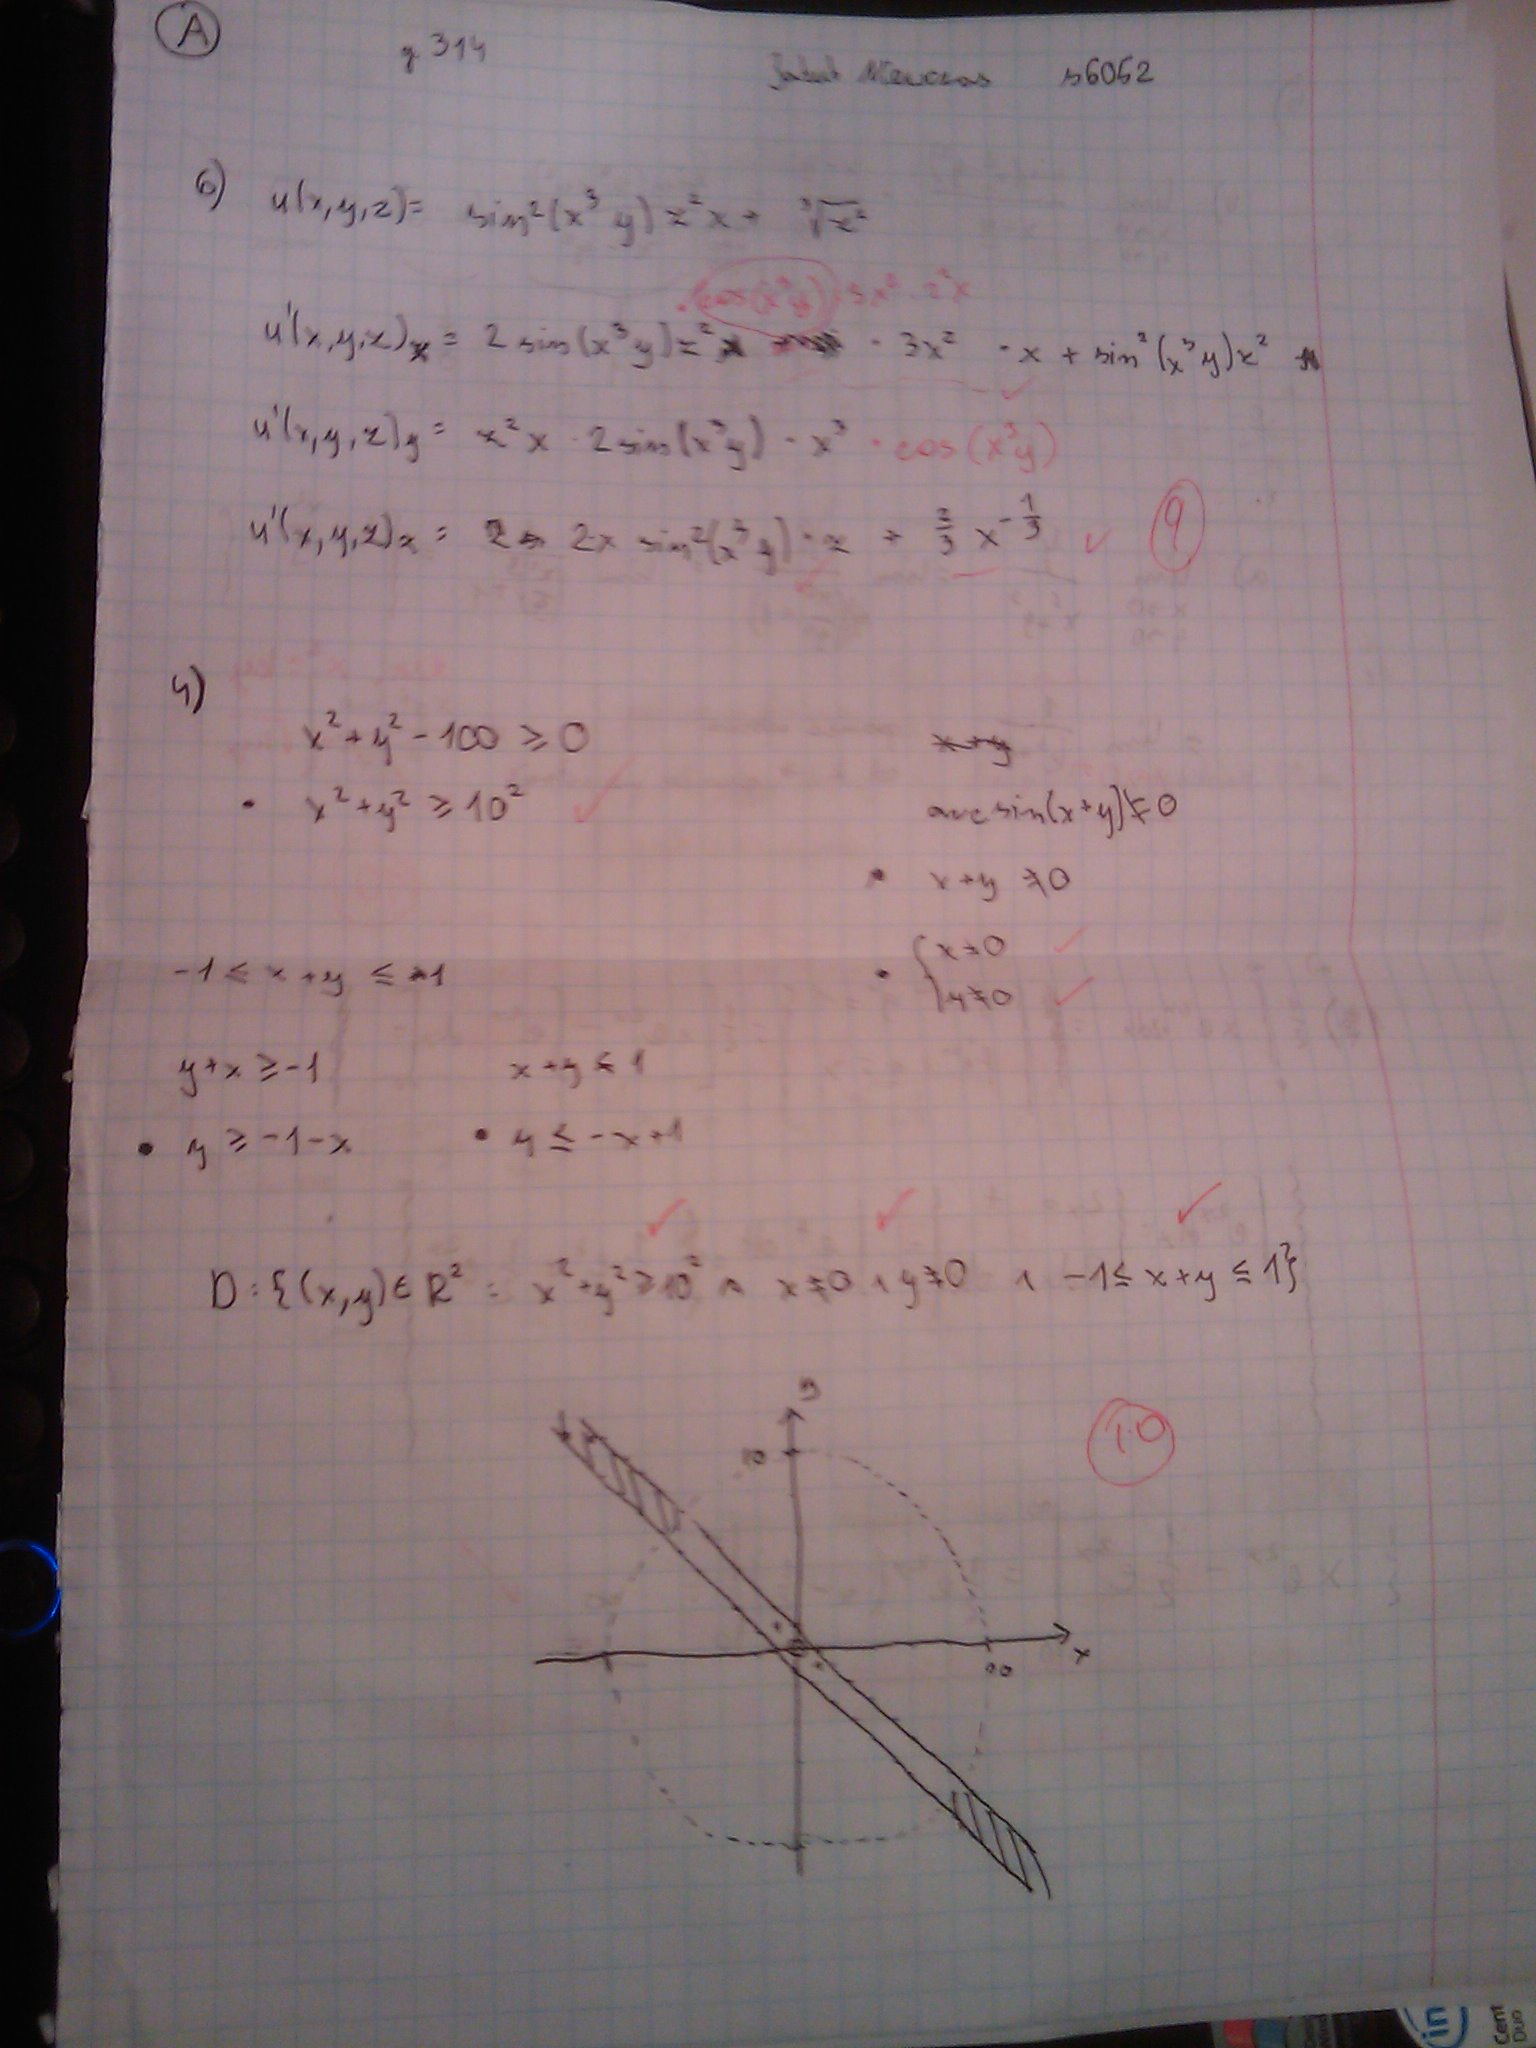 A
g 314
s6052
6) u(x,y,z)= sin²(x³y) z²x + ³√z²
· cos(x³y) · 3x² · z²x
u'(x,y,z)x = 2 sin(x³y) z² · 3x² · x + sin²(x³y) z²
u'(x,y,z)y = z²x · 2 sin(x³y) · x³ · cos(x³y)
u'(x,y,z)z = 2x sin²(x³y) · z + 2/3 z^-1/3 ✓ 9
4)
x²+y²-100 ≥ 0
• x²+y² ≥ 10² ✓
arc sin(x+y) ≠ 0
• x+y ≠ 0
• { x≠0 ✓
y≠0 ✓
-1 ≤ x+y ≤ 1
y+x ≥ -1 x+y ≤ 1
• y ≥ -1-x • y ≤ -x+1
D:{(x,y)∈R² : x²+y² ≥ 10² ∧ x≠0 ∧ y≠0 ∧ -1 ≤ x+y ≤ 1}
10
10
x
10
in
Cent
Duo